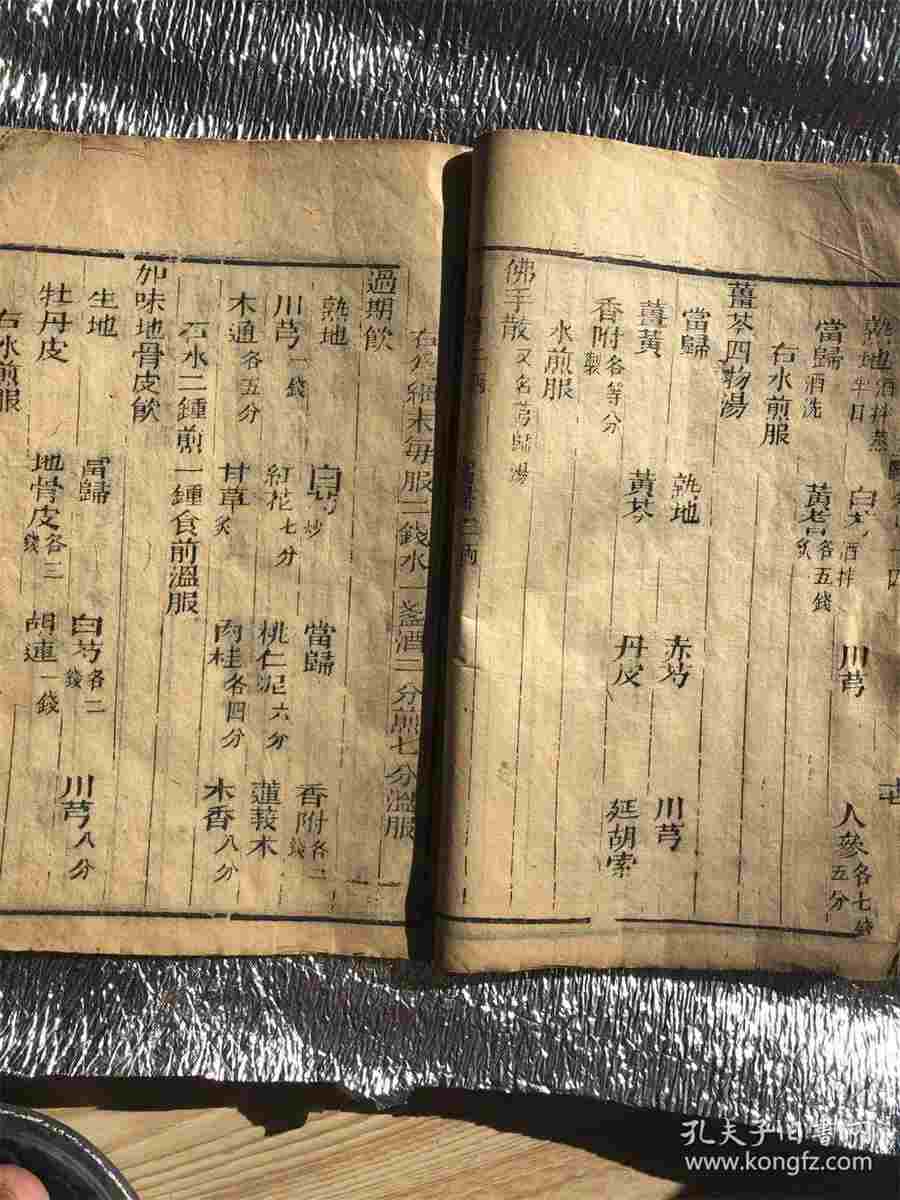 熟地酒拌蒸半日 白芍酒拌 川芎 人參各七錢五分
當歸酒洗 黃芪炙各五錢
右水煎服
薑芩四物湯
當歸 熟地 赤芍 川芎
薑黃 黃芩 丹皮 延胡索
香附製各等分
水煎服
佛手散又名芎歸湯
右為細末每服二錢水一盞酒二分煎七分溫服
過期飲
熟地 白芍炒 當歸 香附各二錢
川芎一錢 紅花七分 桃仁泥六分 蓬莪朮
木通各五分 甘草炙 肉桂各四分 木香八分
右水二鍾煎一鍾食前溫服
加味地骨皮飲
生地 當歸 白芍各二錢 川芎八分
牡丹皮 地骨皮各三錢 胡連一錢
右水煎服
孔夫子旧书网
www.kongfz.com